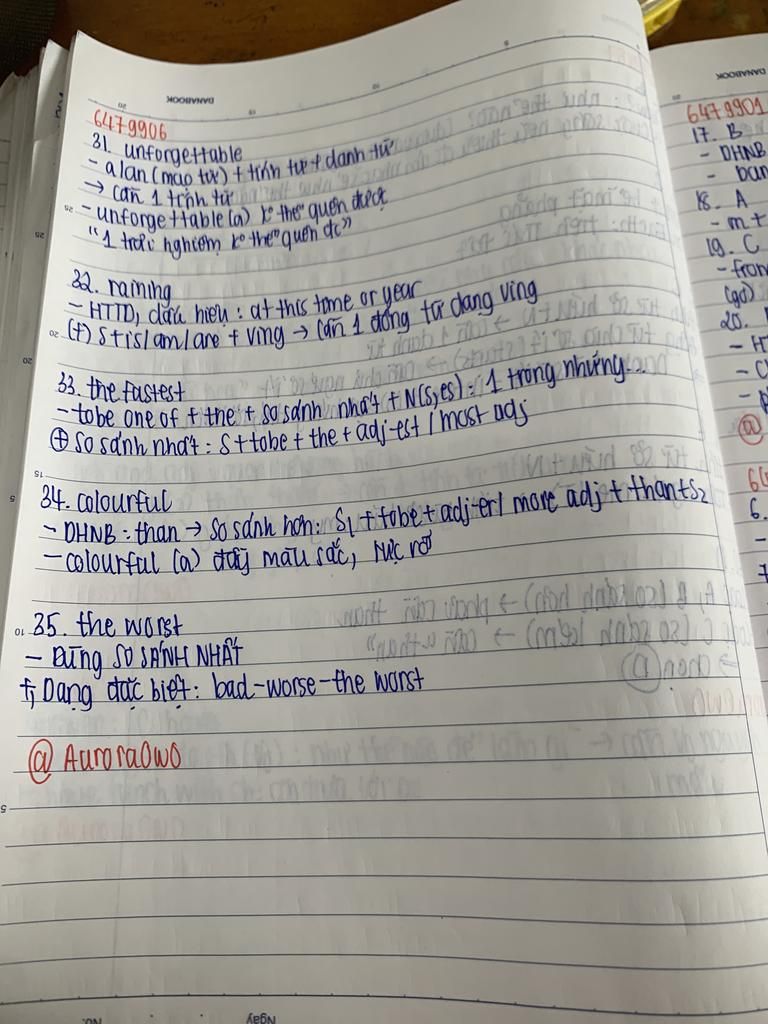 DANABOOK
6479906
31. unforgettable
- a/an (mạo từ) + tính từ + danh từ
→ cần 1 tính từ
- unforgettable (a) ko thể quên được
"1 trải nghiệm ko thể quên đc"
32. raining
- HTTD, dấu hiệu : at this time or year
(+) S + is/am/are + Ving → cần 1 động từ dạng Ving
33. the fastest
- tobe one of + the + so sánh nhất + N(s,es) : 1 trong những...
⊕ so sánh nhất : S + tobe + the + adj-est / most adj
34. colourful
- DHNB : than → so sánh hơn : S1 + tobe + adj-er/ more adj + than + S2
- colourful (a) đầy màu sắc, rực rỡ
35. the worst
- DÙNG SO SÁNH NHẤT
+, Dạng đặc biệt : bad - worse - the worst
@ Aurora0w0
Ngày
No.
DANABOOK
6479901
17. B
- DHNB
18. A
19. C
(go)
20.
6.